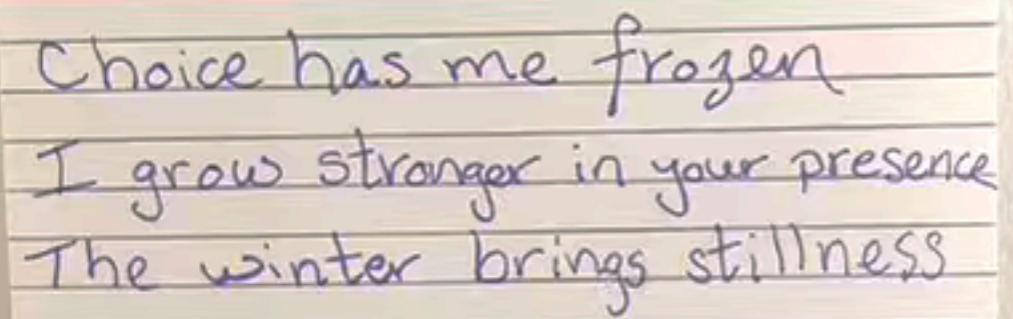 Choice has me frozen
I grow stronger in your presence
The winter brings stillness